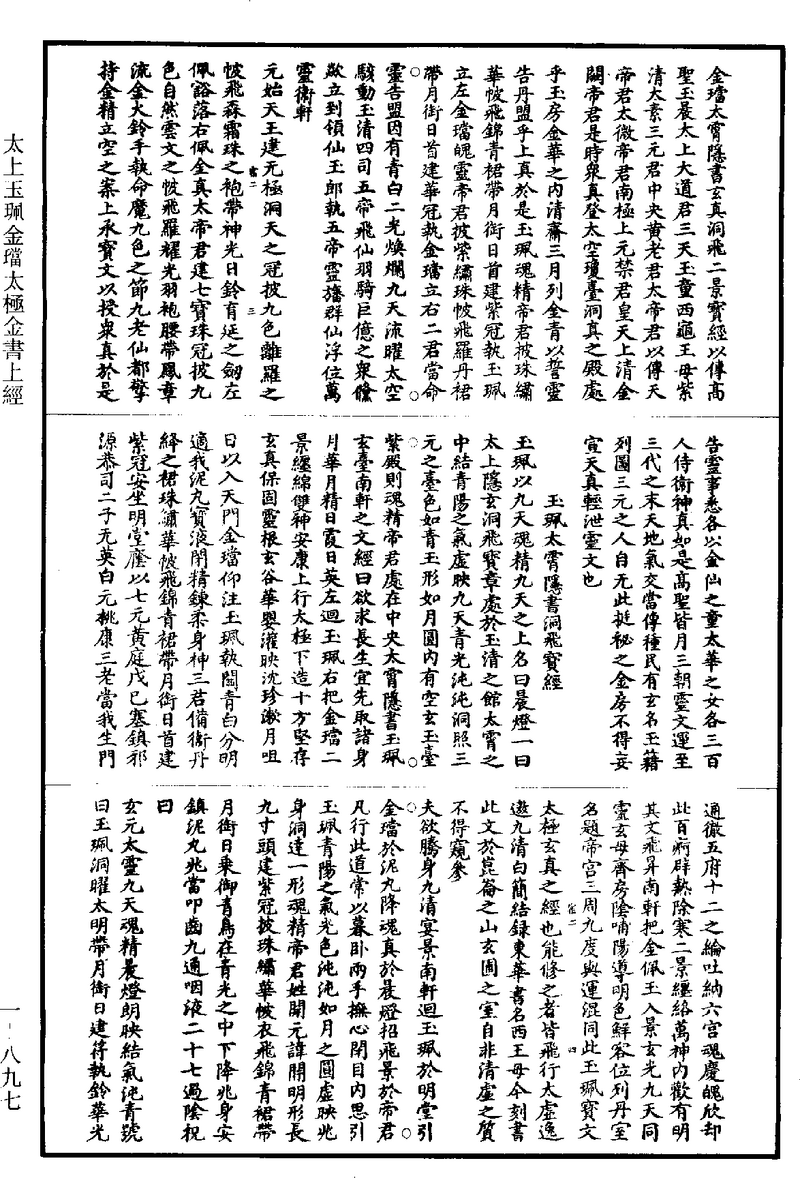 太上玉珮金璫太極金書上經
一－八九七
金璫太霄隱書玄真洞飛二景寶經以傳高
聖玉晨太上大道君三天玉童西龜王母紫
清太素三元君中央黄老君太帝君以傳天
帝君太微帝君南極上元禁君皇天上清金
闕帝君是時衆真登太空瓊臺洞真之殿處
乎玉房金華之内清齋三月列金青以誓靈
告丹盟乎上真於是玉珮魂精帝君披珠繡
華帔飛錦青裙帶月銜日首建紫冠執玉珮
立左金璫魄靈帝君披紫繡珠帔飛羅丹裙
帶月銜日首建華冠執金璫立右二君當命
靈告盟因有青白二光煥爛九天流曜太空
駭動玉清四司五帝飛仙羽騎巨億之衆儵
歘立到領仙玉郎執五帝靈旛群仙浮位萬
靈衛軒
元始天王建无極洞天之冠披九色離羅之
帔飛森霜珠之袍帶神光日鈴育延之劒左
佩豁落右佩金真太帝君建七寶珠冠披九
色自然雲文之帔飛羅耀光羽袍腰帶鳳章
流金火鈴手執命魔九色之節九老仙都擎
持金精立空之案上承寶文以授衆真於是
告靈事悉各以金仙之童太華之女各三百
人侍衛神真如是高聖皆月三朝靈文運至
三代之末天地氣交當傳種民有玄名玉籍
列圖三元之人自无此挺祕之金房不得妄
宣天真輕泄靈文也
玉珮太霄隱書洞飛寶經
玉珮以九天魂精九天之上名曰晨燈一曰
太上隱玄洞飛寶章處於玉清之館太霄之
中結青陽之氣虚映九天青光沌沌洞照三
元之臺色如青玉形如月圓内有空玄玉臺
紫殿則魂精帝君處在中央太霄隱書玉珮
玄臺南軒之文經曰欲求長生宜先取諸身
月華月精日霞日英左迴玉珮右把金璫二
景纏綿雙神安康上行太極下造十方堅存
玄真保固靈根玄谷華嬰灌映沈珍漱月咀
日以入天門金璫仰注玉珮執闔青白分明
適我泥丸寶液閉精鍊柔身神三君備衛丹
絳之裙珠繡華帔飛錦青裙帶月銜日首建
紫冠安坐明堂塵以七元黄庭戊巳塞鎮邪
源恭司二子无英白元桃康三老當我生門
通徹五府十二之綸吐納六宫魂慶魄欣却
此百痾辟熱除寒二景纏絡萬神内歡有明
其文飛昇南軒把金佩玉入景玄光九天同
靈玄母齊房陰哺陽導明色鮮容位列丹室
名題帝宫三周九度與運混同此玉珮寶文
太極玄真之經也能修之者皆飛行太虚逸
遨九清白簡結録東華書名西王母今刻書
此文於崑崙之山玄圃之室自非清虚之質
不得窺參
夫欲騰身九清宴景南軒迴玉珮於明堂引
金璫於泥丸降魂真於晨燈招飛景於帝君
凡行此道常以暮卧兩手撫心閉目内思引
玉珮青陽之氣光色沌沌如月之圓虚映兆
身洞達一形魂精帝君姓開元諱開明形長
九寸頭建紫冠披珠繡華帔衣飛錦青裙帶
月銜日乘御青鳥在青光之中下降兆身安
鎮泥丸兆當叩齒九通咽液二十七過陰祝
曰
玄元太靈九天魂精晨燈朗映結氣沌青號
曰玉珮洞曜太明帶月銜日建符執鈴華光